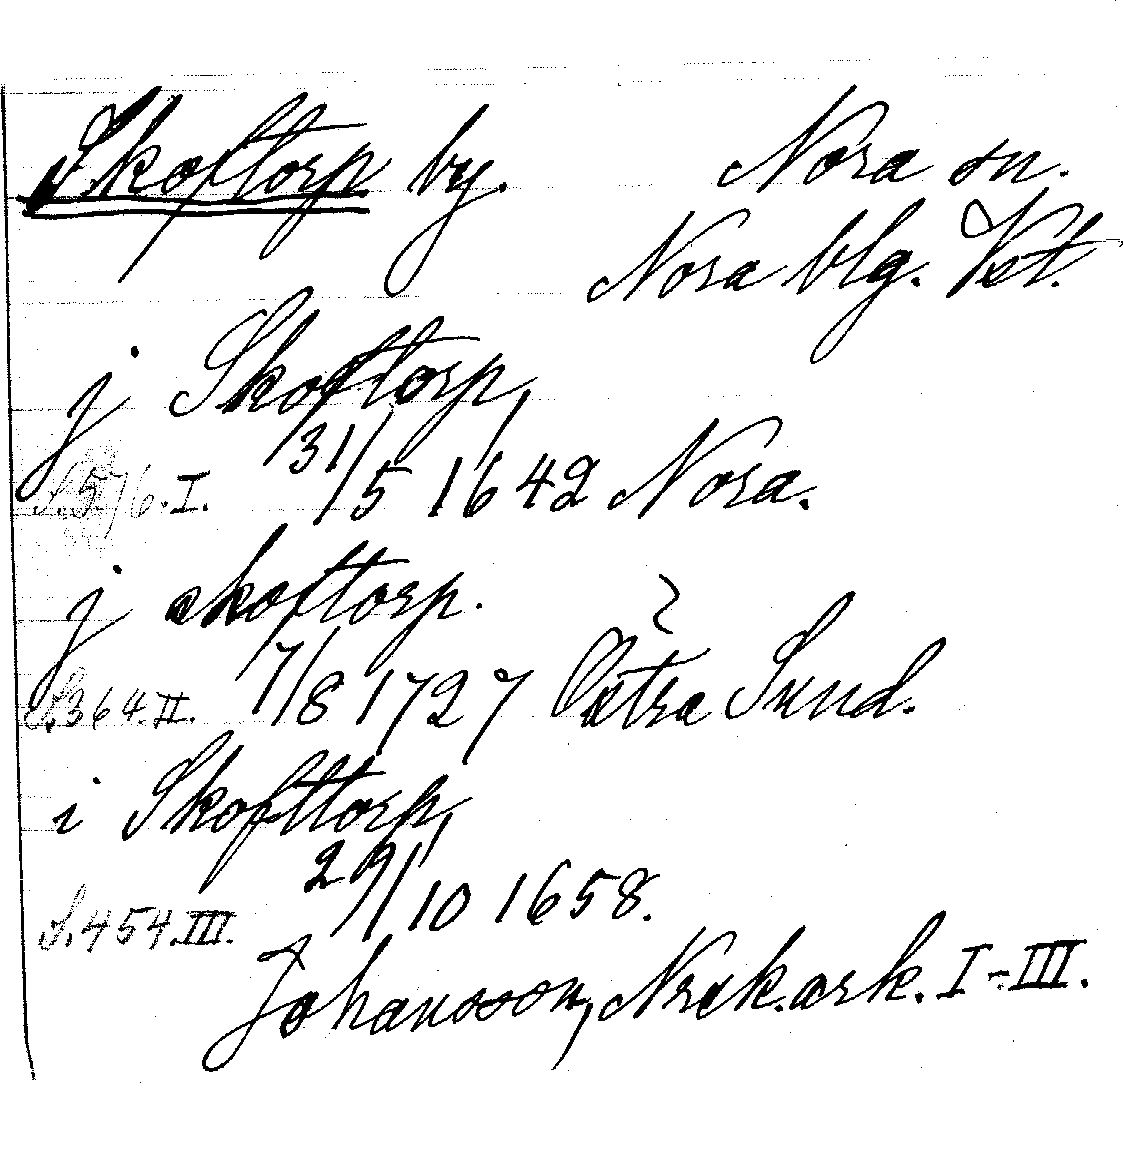 Skoftorp by. Nora sn.
Nora blg. Vst.
j Skoftorp,
S.576.I. 31/5 1642 Nora.
j skoftorp.
S.364.II. 7/8 1727 Östra Sund.
i Skofttorp,
29/10 1658.
S.454.III.
Johansson, Nrak.ark. I-III.